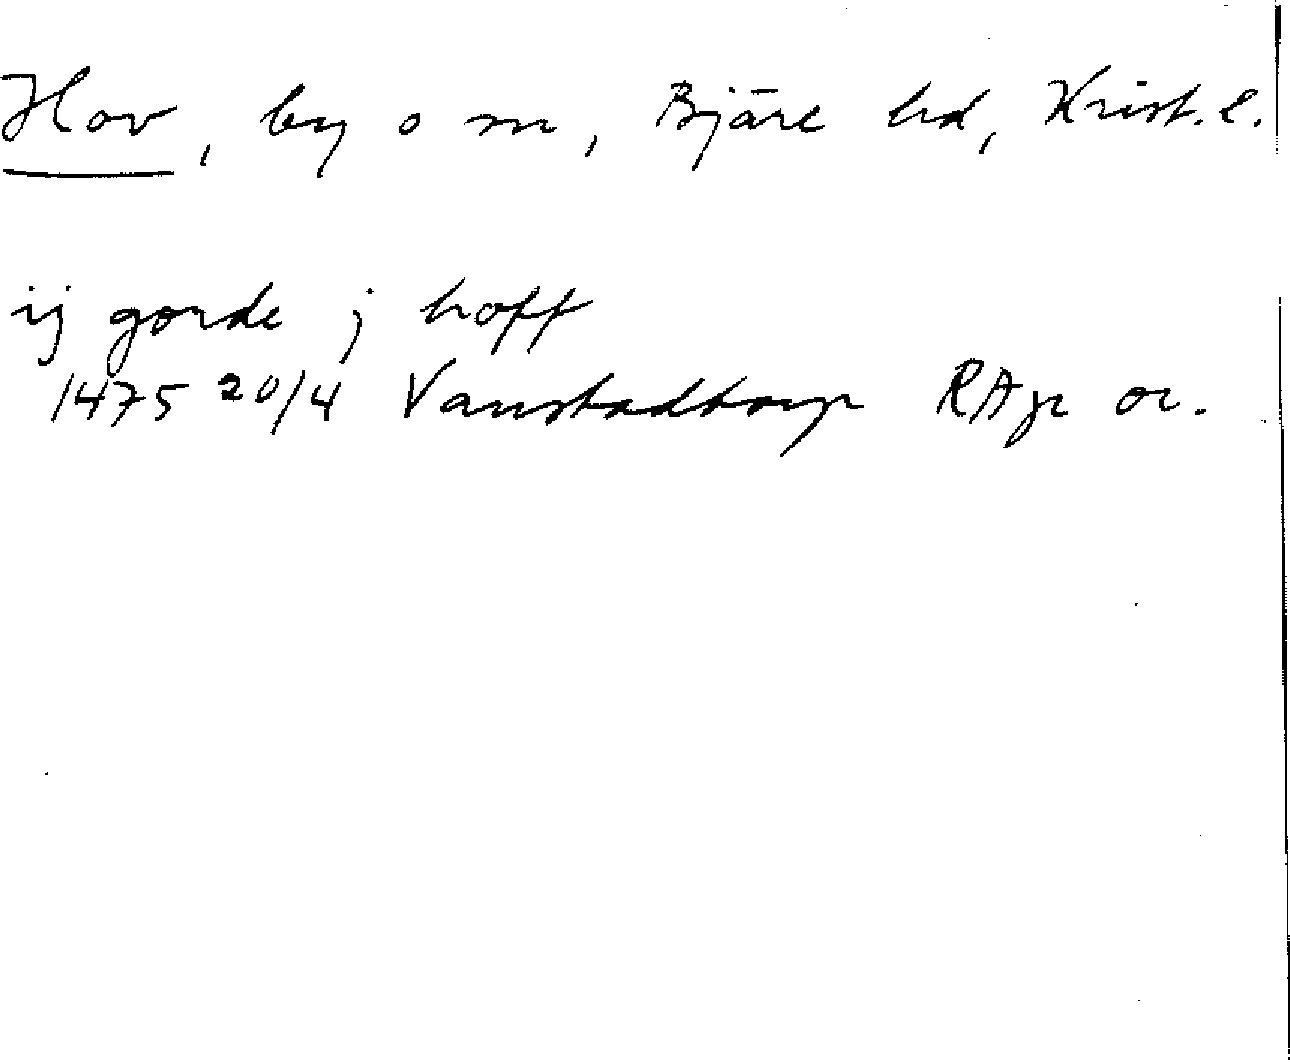 Hov, by o sn, Bjäre hd, Krist. l.
ij gorde j hoff
1475 20/4 Vanstadtorp RAp or.